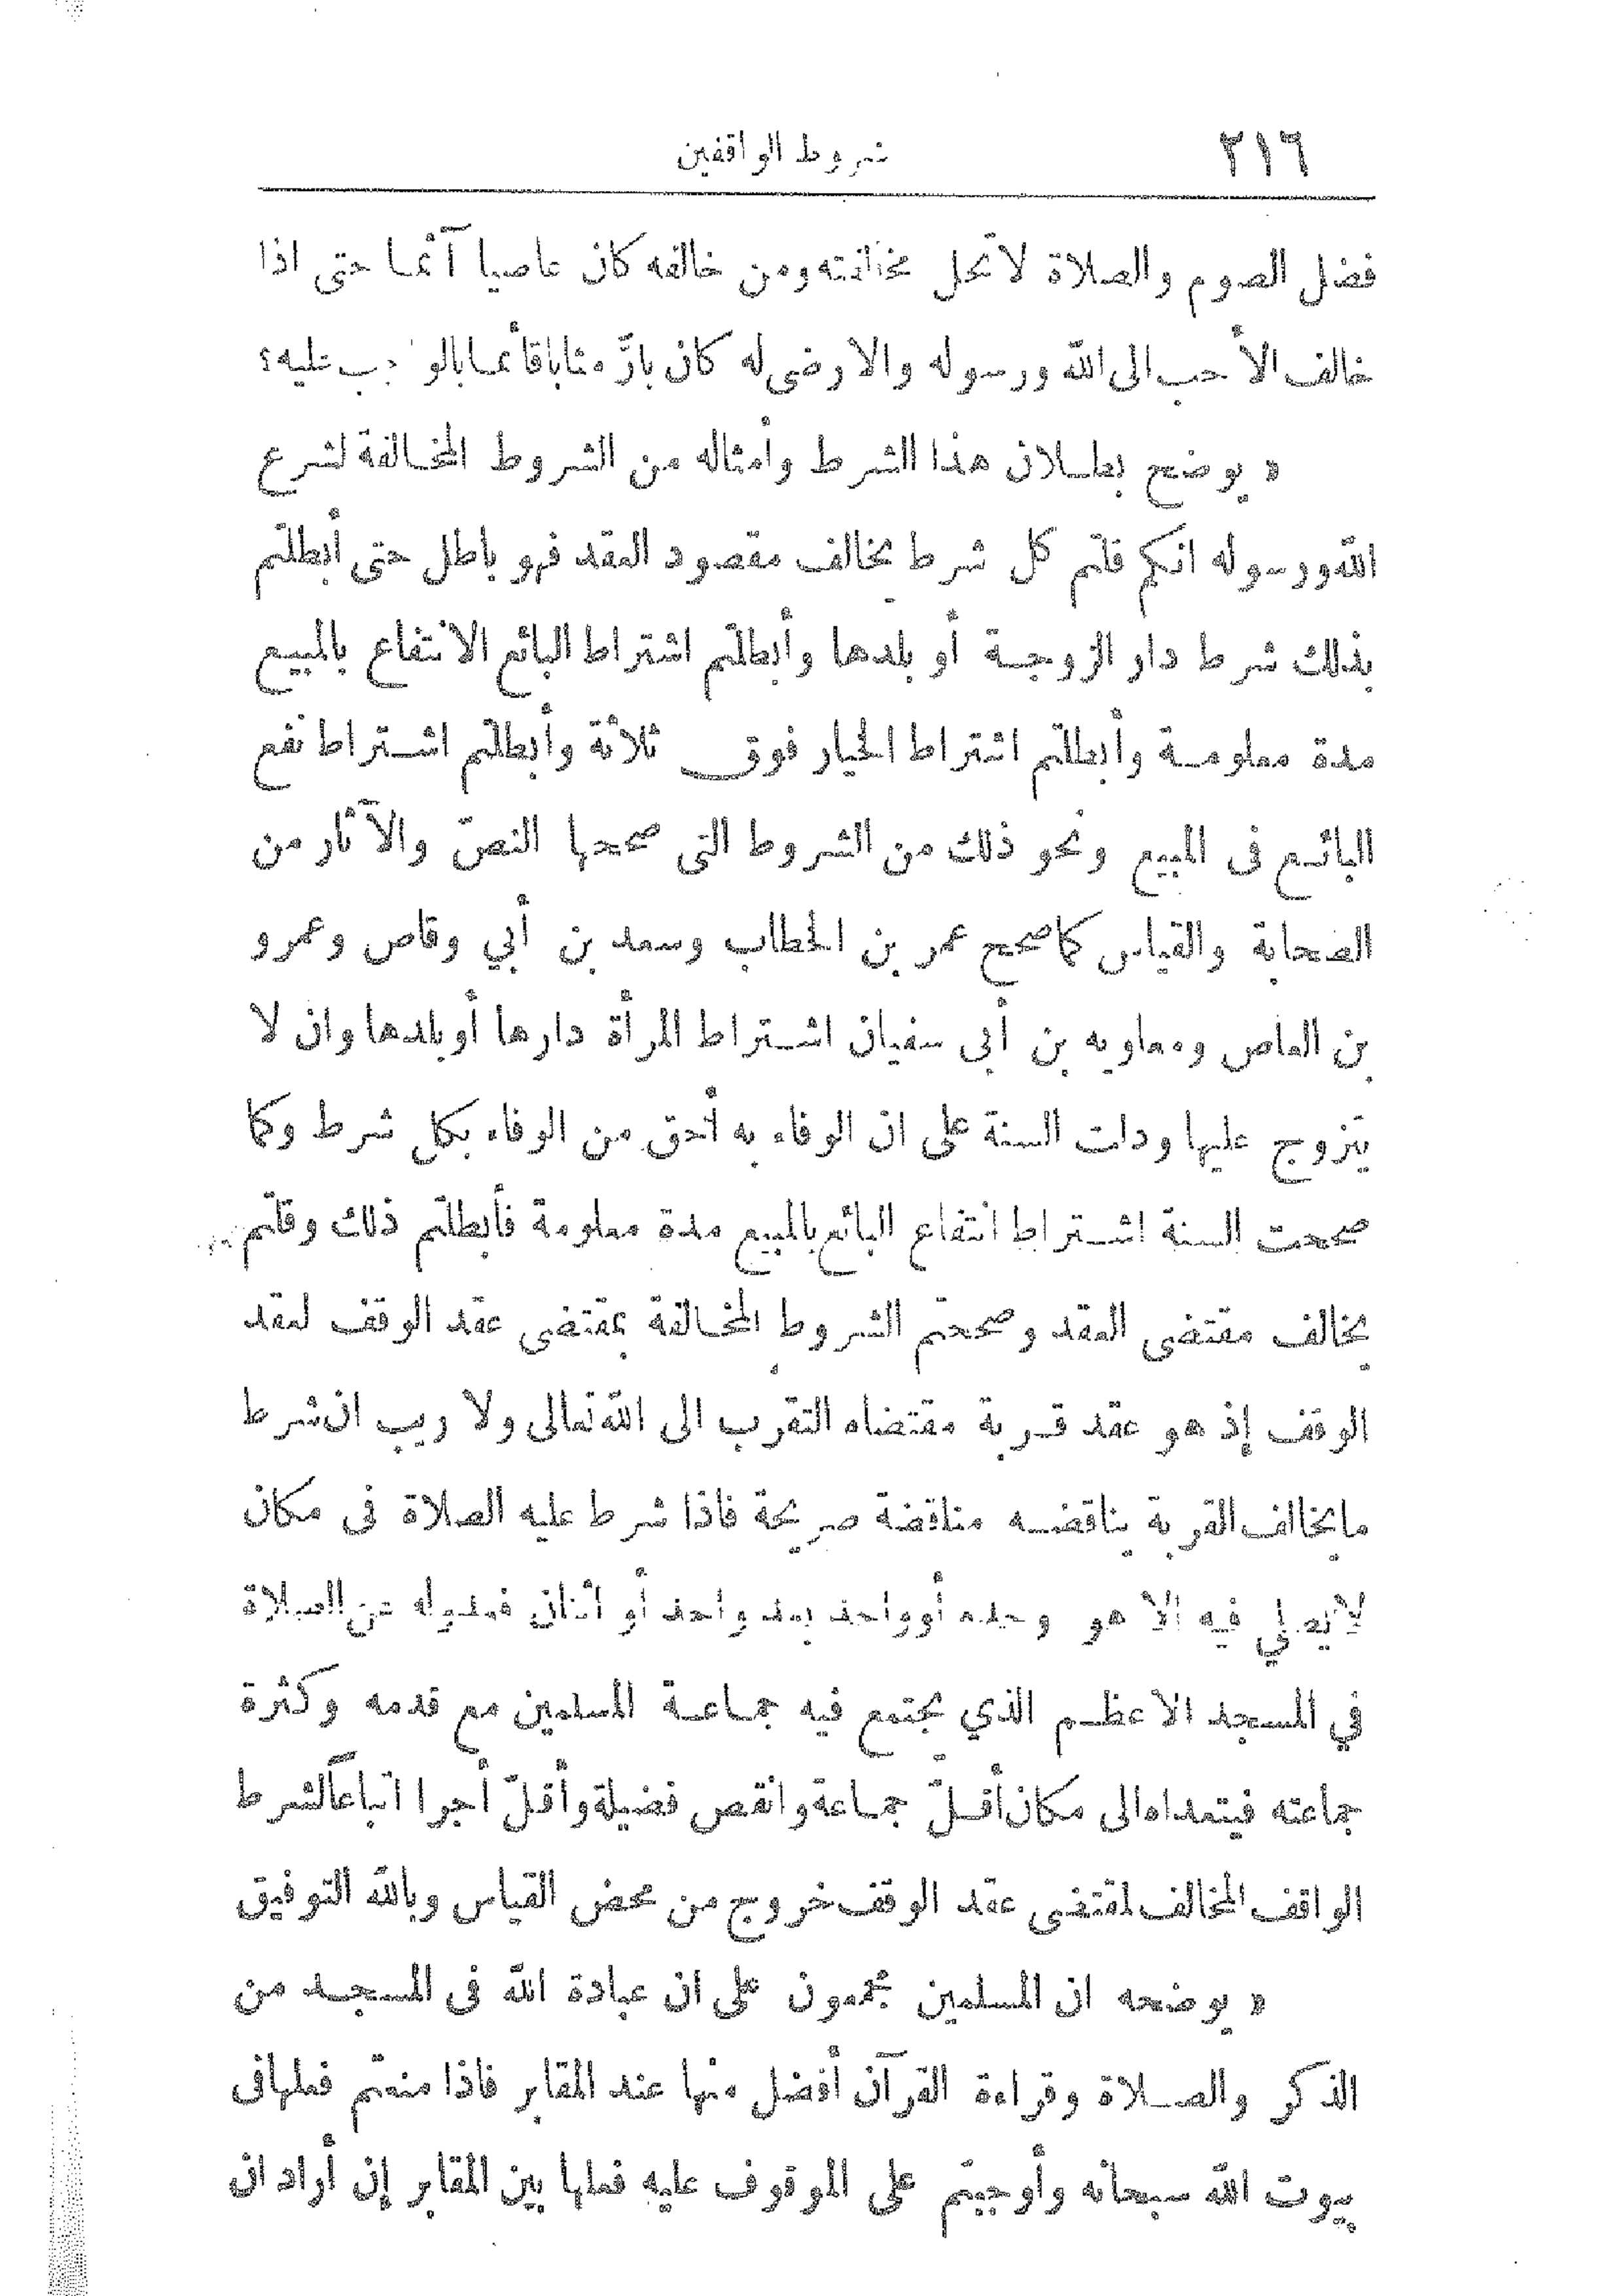 ٢١٦
شروط الواقفين
فضل الصوم والصلاة لا تحل مخالفته ومن خالفه كان عاصيا آثما حتى اذا
خالف الأحب الى الله ورسوله والارضى له كان بارّ مثابا قائما بالواجب عليه؟
« يوضح بطلان هذا الشرط وأمثاله من الشروط المخالفة لشرع
الله ورسوله انكم قلتم كل شرط يخالف مقصود العقد فهو باطل حتى أبطلتم
بذلك شرط دار الزوجة أو بلدها وأبطلتم اشتراط البائع الانتفاع بالمبيع
مدة معلومة وأبطلتم اشتراط الخيار فوق ثلاثة وأبطلتم اشتراط نفع
البائع فى المبيع ونحو ذلك من الشروط التى صححها النصّ والآثار من
الصحابة والقياس كما صحح عمر بن الخطاب وسعد بن أبي وقاص وعمرو
بن العاص ومعاويه بن أبى سفيان اشتراط المرأة دارها أو بلدها وان لا
يتزوج عليها ودلت السنة على ان الوفاء به أحق من الوفاء بكل شرط وكما
صححت السنة اشتراط انتفاع البائع بالمبيع مدة معلومة فأبطلتم ذلك وقلتم
يخالف مقتضى العقد وصححتم الشروط المخالفة بمقتضى عقد الوقف لعقد
الوقف إذ هو عقد قربة مقتضاه التقرب الى الله تعالى ولا ريب ان شرط
ما يخالف القربة يناقضه مناقضة صريحة فاذا شرط عليه الصلاة فى مكان
لا يصلي فيه الا هو وحده أو واحد بعد واحد أو اثنان فعدوله عن الصلاة
في المسجد الاعظم الذي يجتمع فيه جماعة المسلمين مع قدمه وكثرة
جماعته فيتعداه الى مكان أقلّ جماعة وانقص فضيلة وأقلّ أجرا اتباعاً لشرط
الواقف المخالف لمقتضى عقد الوقف خروج من محض القياس وبالله التوفيق
« يوضحه ان المسلمين مجمعون على ان عبادة الله فى المسجد من
الذكر والصلاة وقراءة القرآن أفضل منها عند المقابر فاذا منعتم فعلها فى
بيوت الله سبحانه وأوجبتم على الموقوف عليه فعلها بين المقابر إن أراد ان